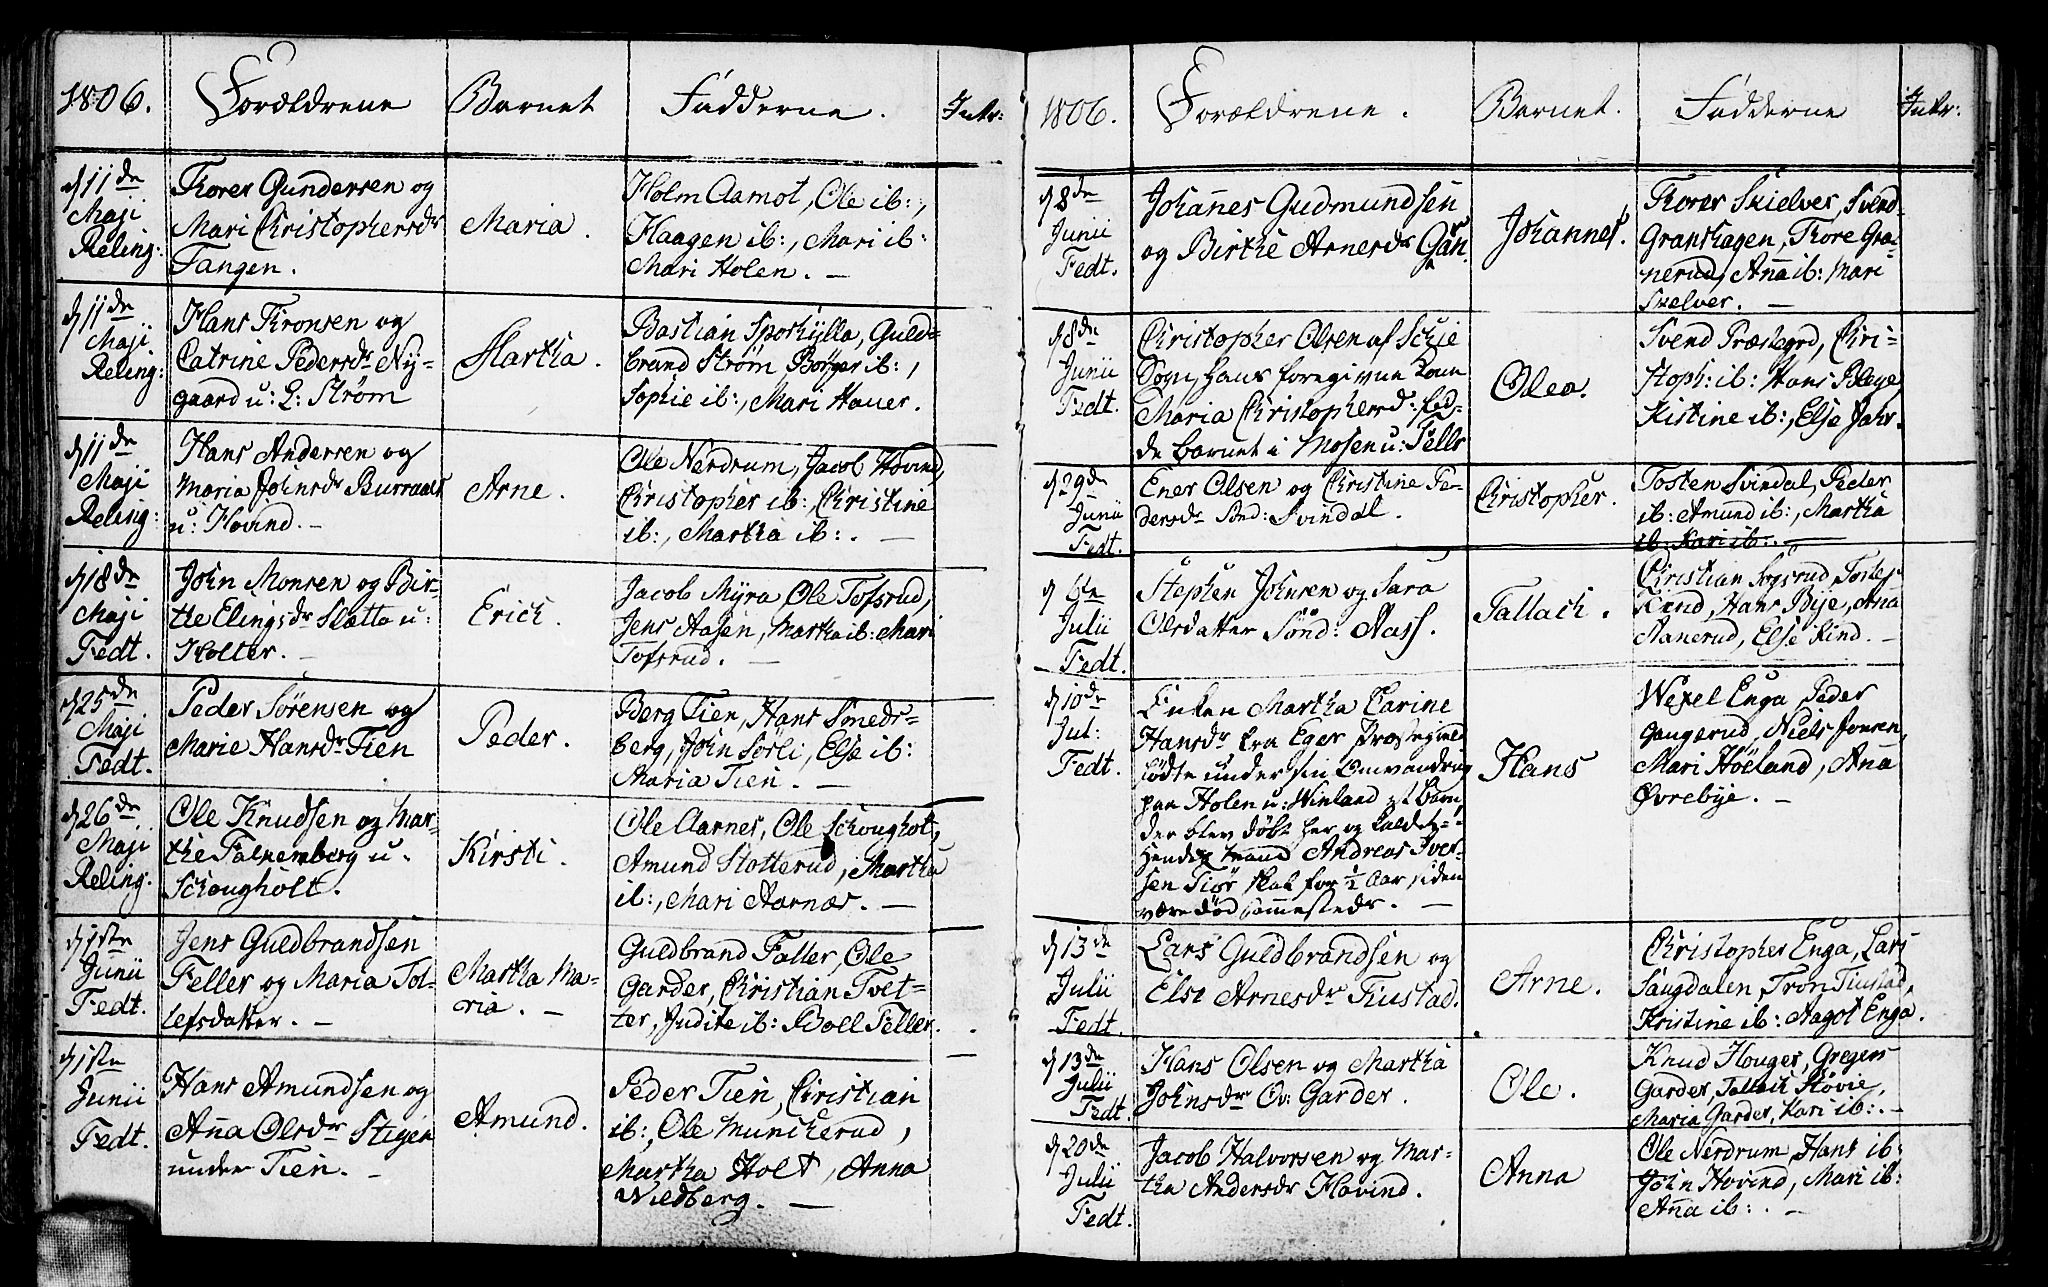 1806.
Forældrene
Barnet
Fadderne.
Intr:
d 11de
Maji
Reling:
Thorer Gundersen og
Mari Christophersdr
Tangen.
Maria.
Holm Aamot, Ole ib:,
Haagen ib:, Mari ib:
Mari Holen. —
d 11de
Maji
Reling:
Hans Thronsen og
Catrine Pedersdr Ny-
gaard u: L: Strøm
Martha.
Bastian Sporkylla, Guld-
brand Strøm Børger ib:,
Sophie ib:, Mari Hauer.
d 11de
Maji
Reling:
Hans Andersen og
Maria Johnsdr Burraas
u: Hovind. —
Arne.
Ole Nerdrum, Jacob Hovind,
Christopher ib:, Christine
ib:, Martha ib:. —
d 18de
Maji
Fedt.
John Monsen og Bir-
the Elingsdr Slætta u:
Holter. —
Erich.
Jacob Myra, Ole Tofsrud,
Jens Aasen, Martha ib: Mari
Tofsrud. —
d 25de
Maji
Fedt.
Peder Sørensen og
Marie Hansdr Tien
Peder.
Berg Tien, Hans Smeds-
berg, John Sørli, Else ib:
Maria Tien. —
d 26de
Maji
Reling.
Ole Knudsen og Mar-
the Falkemberg u.
Schougholt.
Kirsti.
Ole Aarnes, Ole Schougholt,
Amund Slotterud, Martha
ib:, Mari Aarnæs. —
d 1ste
Junii
Fedt.
Jens Guldbrandsen
Feller og Maria Tol-
lefsdatter. —
Martha Ma-
ria. —
Guldbrand Faller, Ole
Garder, Christian Tvet-
ter, Judite ib: Boel Feller.
d 1ste
Junii
Fedt.
Hans Amundsen og
Anna Olsdr Stigen
under Tien. —
Amund.
Peder Tien, Christian
ib:, Ole Muncherud,
Martha Holt, Anna
Wildberg. —
1806.
Forældrene.
Barnet.
Fadderne
Intr:
d 8de
Junii
Fedt.
Johannes Gudmundsen
og Birthe Arnesdr
Johannes.
Thorer Skielver, Svend
Granshagen, Thore Gra-
nerud, Anna ib: Mari
Skelver. —
d 8de
Junii
Fedt.
Christopher Olsen af Schie
Sogn, hans foregivne Kone
Maria Christophersd: fød-
de barnet i Mosen u: Fells
Olea.
Svend Præstegrd, Chri-
stoph: ib: Hans Blege,
Kistine ib:, Else Jahr.
d 29de
Junii
Fedt.
Ener Olsen og Christine Pe-
dersdr Sønd: Svindal.
Christopher.
Tosten Svindal, Peder
ib: Amund ib:, Martha
ib: Kari ib:. —
d 6te
Julii
Fedt.
Stephen Johnsen og Sara
Olsdatter Sønd: Aass.
Tallach.
Christian Sogsrud, Tostes
Kind, Hans Bije, Anna
Aanerud, Else Kind. —
d 10de
Jul:
Fedt.
Enken Martha Carine
Hansdr fra Eger Præstegield
fødte under sin Omvandring
paa Holen u: Winland et Barn,
der blev døbt her og kaldet
Hendes Mand Andreas Iver-
sen Tiør skal for ½ Aar siden
være død sammesteds. —
Hans
Wexel Enga, Peder
Gangerud, Niels Jonsen,
Mari Høeland, Anna
Øvrebye. —
d 13de
Julii
Fedt.
Lars Guldbrandsen og
Else Arnesdr Tiustad.
Arne.
Christopher Enga, Lars
Saugdalen, Tron Tiustad,
Kristine ib: Aagot Enga.
d 13de
Julii
Fedt.
Hans Olsen og Martha
Johnsdr Ov: Garder.
Ole.
Knud Houger, Gregers
Garder, Tallach Støvie,
Maria Garder, Kari ib:. —
d 20de
Julii
Fedt.
Jacob Halvorsen og Mar-
tha Andersdr Hovind.
Anna
Ole Nerdrum, Hans ib:
John Hovind, Mari ib:
Anna ib:. —